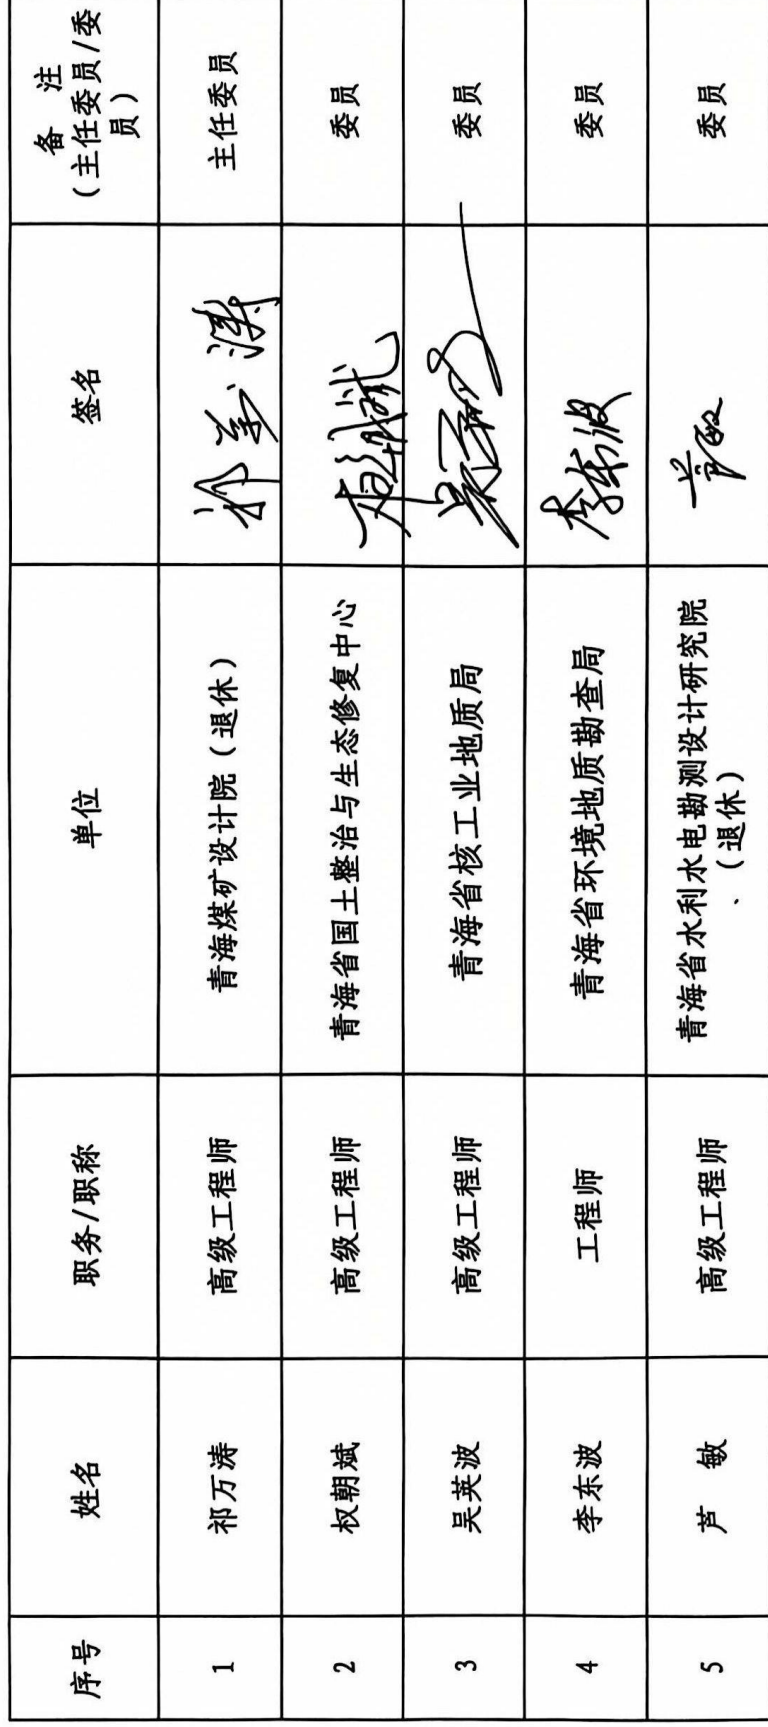 序号 姓名 职务/职称 单位 签名 备 注
（主任委员/委
员）
1 祁万涛 高级工程师 青海煤矿设计院（退休） 祁万涛 主任委员
2 权朝斌 高级工程师 青海省国土整治与生态修复中心 委员
3 吴英波 高级工程师 青海省核工业地质局 委员
4 李东波 工程师 青海省环境地质勘查局 李东波 委员
5 芦 敏 高级工程师 青海省水利水电勘测设计研究院 芦敏 委员
、（退休）